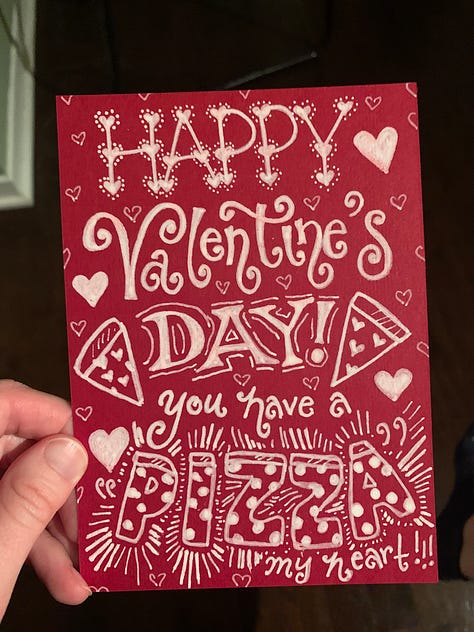 HAPPY
Valentine's
DAY!
you have a
"PIZZA"
my heart!!!